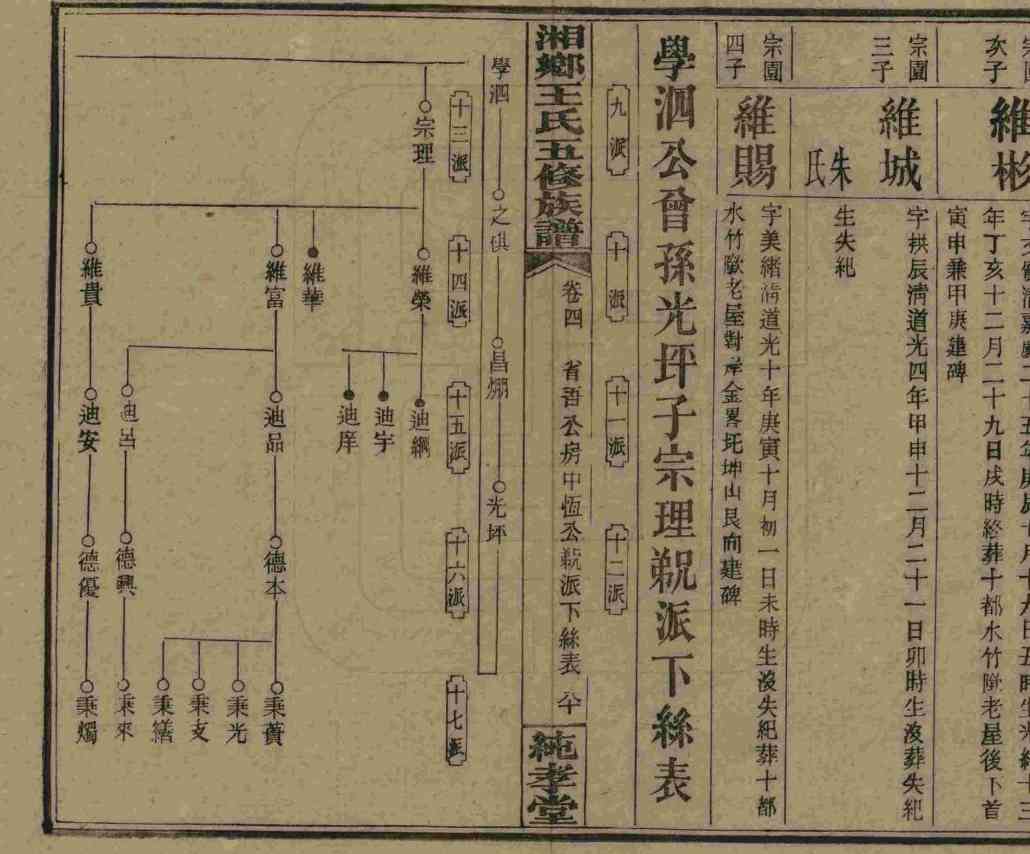 次子
維彬
年丁亥十二月二十九日戌時終葬十都水竹隴老屋後下首
寅申兼甲庚建碑
宗園
三子
維城
字拱辰清道光四年甲申十二月二十一日卯時生沒葬失紀
朱氏
生失紀
宗園
四子
維賜
字美緒清道光十年庚寅十月初一日未時生沒失紀葬十都
水竹隴老屋對岸金畧坵坤山艮向建碑
學泗公會孫光坪子宗理覜派下絲表
九派
十派
十一派
十二派
湘鄉王氏五修族譜
卷四
省吾公房中恆公覜派下絲表
純孝堂
學泗
之琪
昌
光坪
十三派
十四派
十五派
十六派
十七派
宗理
維榮
維華
維富
維貴
迪綱
迪宇
迪庠
迪品
迪呂
迪安
德本
德興
德優
秉黃
秉光
秉支
秉繕
秉來
秉燭